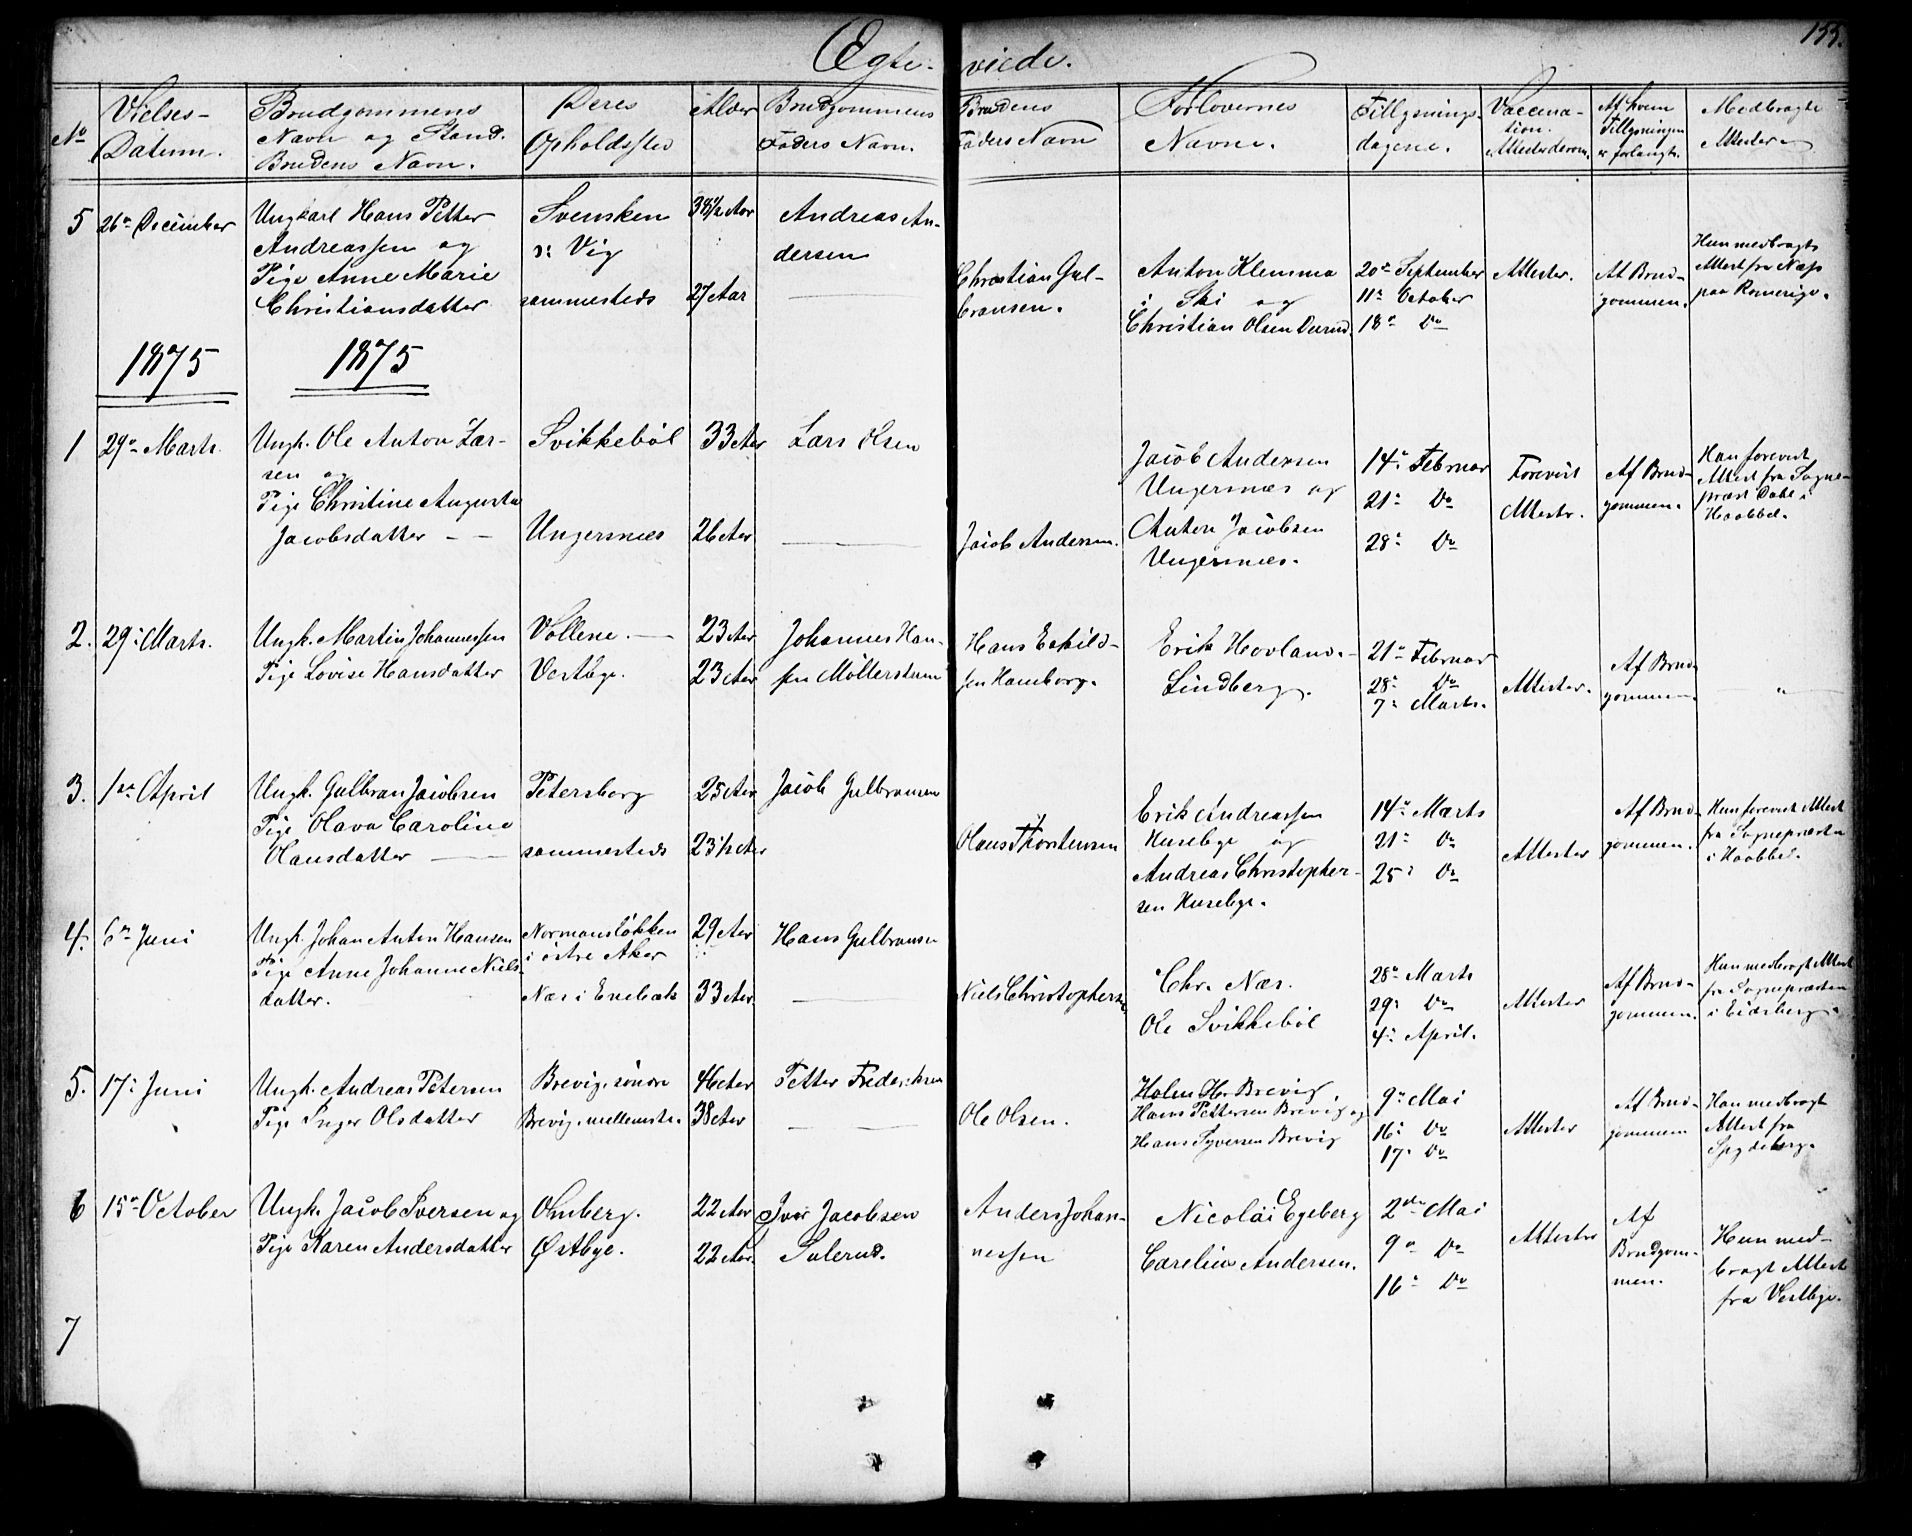 155.
Ægte- viede.
No
Vielses-
Datum.
Brudgommens
Navn og Stand.
Brudens Navn.
Deres
Opholdssted
Alder
Brudgommens
Faders Navn.
Brudens
Faders Navn
Forlovernes
Navne.
Tillysnings-
dagene.
Vaccina-
tion.
Attester derom.
Af hvem
Tillysningen
er forlangt.
Medbragte
Attester
5 26de December
Ungkarl Hans Petter
Andreassen og
Pige Anne Marie
Christiansdatter
Svensken
i Vig
sammesteds
38½ Aar
27 Aar
Andreas An-
dersen
Christian Gul-
bransen.
Anton Klemma
i Ski og
Christian Olsen
20de September
11te October
18de Do
Attester.
At Brud-
gommen.
Hun medbragte
Attest fra Næss
paa Romerige.
1875 1875
1 29de Marts.
Ungk. Ole Anton Lar-
sen og
Pige Christine Augusta
Jacobsdatter
Svikkebøl
Ungersnæs
33 Aar
26 Aar
Lars Olsen
Jacob Andersen.
Jacob Andersen
Ungersnæs og
Anton Jacobsen
Ungersnæs.
14de Februar
21de Do
28de Do
Forevist
Attestr.
Af Brud-
gommen.
Han forevist
Attest fra Sogne-
præst Dahl i
Haabbel.
2. 29de Marts.
Ungk. Martin Johannessen
Pige Lovise Hansdatter
Vollene.
Vestbye.
23 Aar
23 Aar
Johannes Han-
sen Möllerstuen
Hans Eskild-
sen Hamborg.
Erik Hovland.
Lindberg.
21de Februar
28de Do
7de Marts.
Attester.
Af Brud
gommen
"
3. 1ste April
Ungk. Gulbran Jacobsen
Pige Olava Caroline
Olausdatter
Petersborg
sammesteds
25 Aar
23½ Aar
Jacob Gulbransen
Olaus Thorstensen
Erik Andreassen
Husebye og
Andreas Christopher-
sen Husebye.
14de Marts
21de Do
25de Do
Attester
Af Brud-
gommen.
Hun forevist Attest
fra Sognepræsten
i Haabbel.
4. 6te Juni
Ungk. Johan Anton Hansen
Pige Anne Johanne Niels-
datter.
Normansløkken
i østre Aker
Nær i Enebak
29 Aar
33 Aar
Hans Gulbransen
Niels Christophersen
Chr. Nær.
Ole Svikkebøl
28de Marts
29de Do
4de April.
Attester
Af Brud-
gommen.
Hun medbragt Attest
fra Sognepræsten
i Eidsberg.
5. 17de Juni
Ungk. Andreas Petersen
Pige Inger Olsdatter
Brevig, söndre
Brevig, mellemste.
46 Aar
38 Aar
Petter Frederiksen
Ole Olsen.
Holm Hr. Brevig,
Hans Pettersen Brevig og
Hans Syversen Brevig
9de Mai
16de Do
17de Do
Attester
Af Brud-
gommen
Han medbragt
Attest fra
Spydeberg.
6 15de October
Ungk. Jacob Iversen og
Pige Karen Andersdatter
Ohnberg.
Østbye.
22 Aar
22 Aar.
Iver Jacobsen
Solerud.
Anders Johan-
nessen
Nicolai Egeberg
Carelius Andersen.
2den Mai
9de Do
16de Do
Attester
Af
Brudgom-
men.
Hun med-
bragt Attest
fra Vestbye.
7